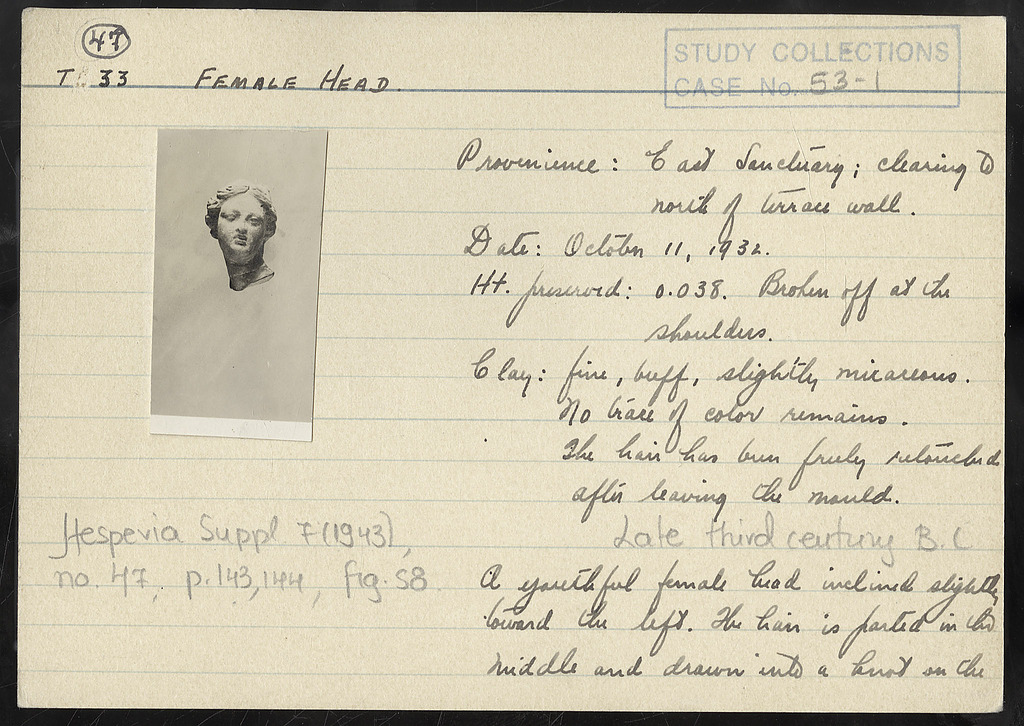 47
T 33 FEMALE HEAD.
STUDY COLLECTIONS
CASE No. 53-1
Provenience: East Sanctuary; clearing to
north of terrace wall.
Date: October 11, 1932.
Ht. preserved: 0.038. Broken off at the
shoulders.
Clay: fine, buff, slightly micaceous.
No trace of color remains.
The hair has been freely retouched
after leaving the mould.
Hesperia Suppl 7 (1943),
no. 47, p. 143, 144, fig. 58
Late third century B.C
A youthful female head inclined slightly
toward the left. The hair is parted in the
middle and drawn into a knot on the